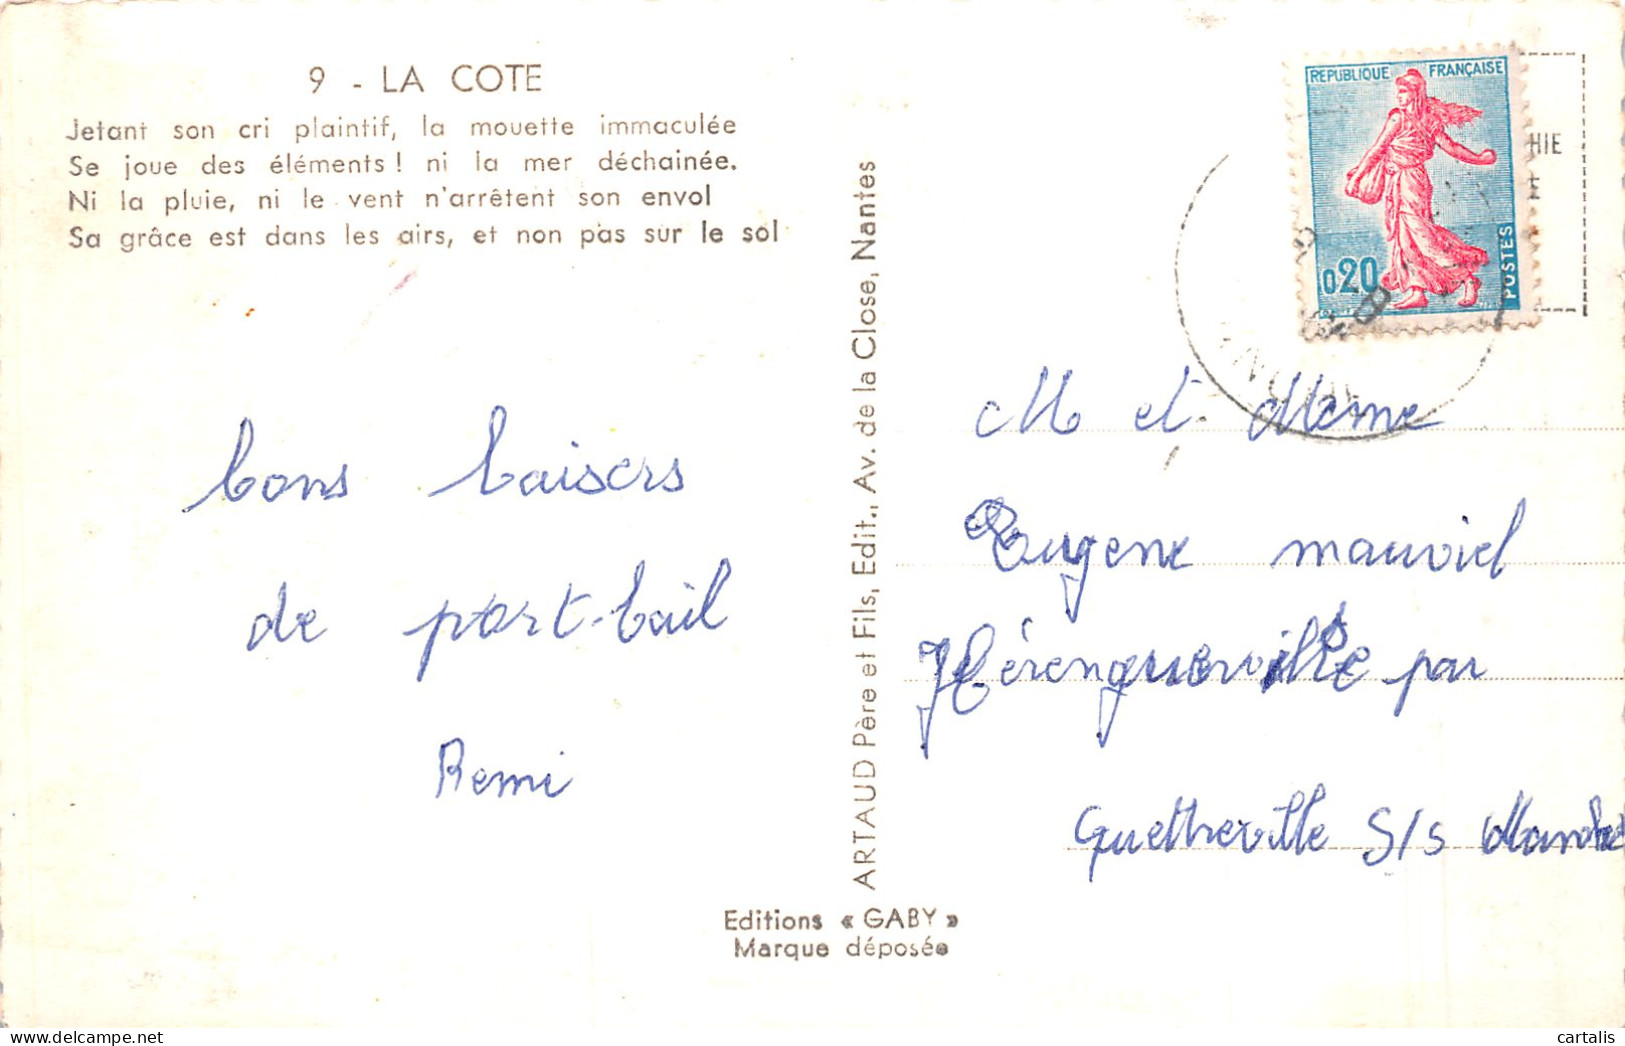 9 - LA COTE
Jetant son cri plaintif, la mouette immaculée
Se joue des éléments ! ni la mer déchainée.
Ni la pluie, ni le vent n'arrêtent son envol
Sa grâce est dans les airs, et non pas sur le sol
bons baisers
de port-bail
Remi
ARTAUD Père et Fils, Edit., Av. de la Close, Nantes
Editions « GABY »
Marque déposée
REPUBLIQUE FRANÇAISE
0,20
POSTES
HIE
M et Meme
Eugene mauviel
Hérenguerville par
Quettreville S/s
cartalis